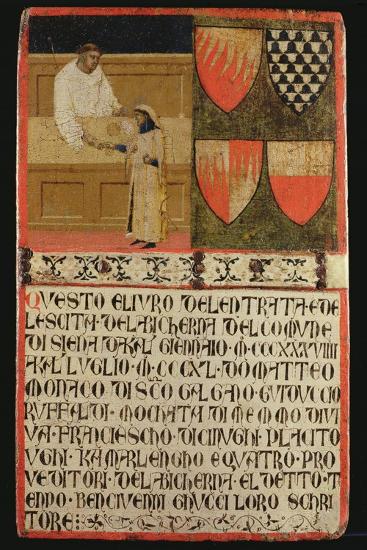 QUESTO ELIVRO DELENTRATA·E DE
LESCITA· DELABICHERNA DELCOMUNE
DI SIENA DAKAL GIENNAIO·M·CCCXXXVIIII
AKAL LUGLIO·M·CCCXL·DOMATTEO
MONACO DISCO GALGANO·GUIDUCCIO
RUFFALDI·MOCHATA DIMEMMO DIVI
VA·FRANCIESCHO·DICINUGHI·PLACITO
UGHI·KAMARLENGHO EQUATRO·PRO
VEDITORI·DELABICHERNA·ELDETTO·TE
ENDO·BENCIVENNI GHUCCI LORO SCHRI
TORE